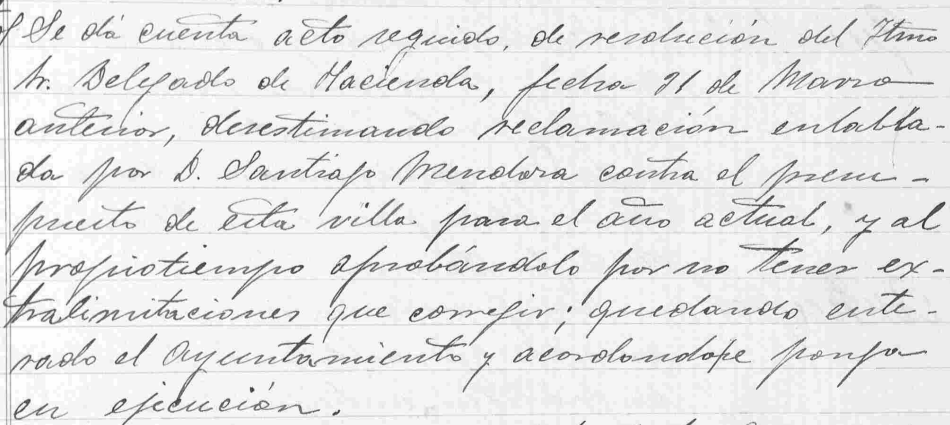 Se dá cuenta acto seguido, de resolución del Iltmo
Sr. Delegado de Hacienda, fecha 21 de Marzo
anterior, desestimando reclamación entabla-
da por D. Santiago Mendoza contra el presu-
puesto de esta villa para el año actual, y al
propio tiempo aprobándolo por no tener ex-
tralimitaciones que corregir; quedando ente-
rado el Ayuntamiento y acordándose ponga
en ejecución.